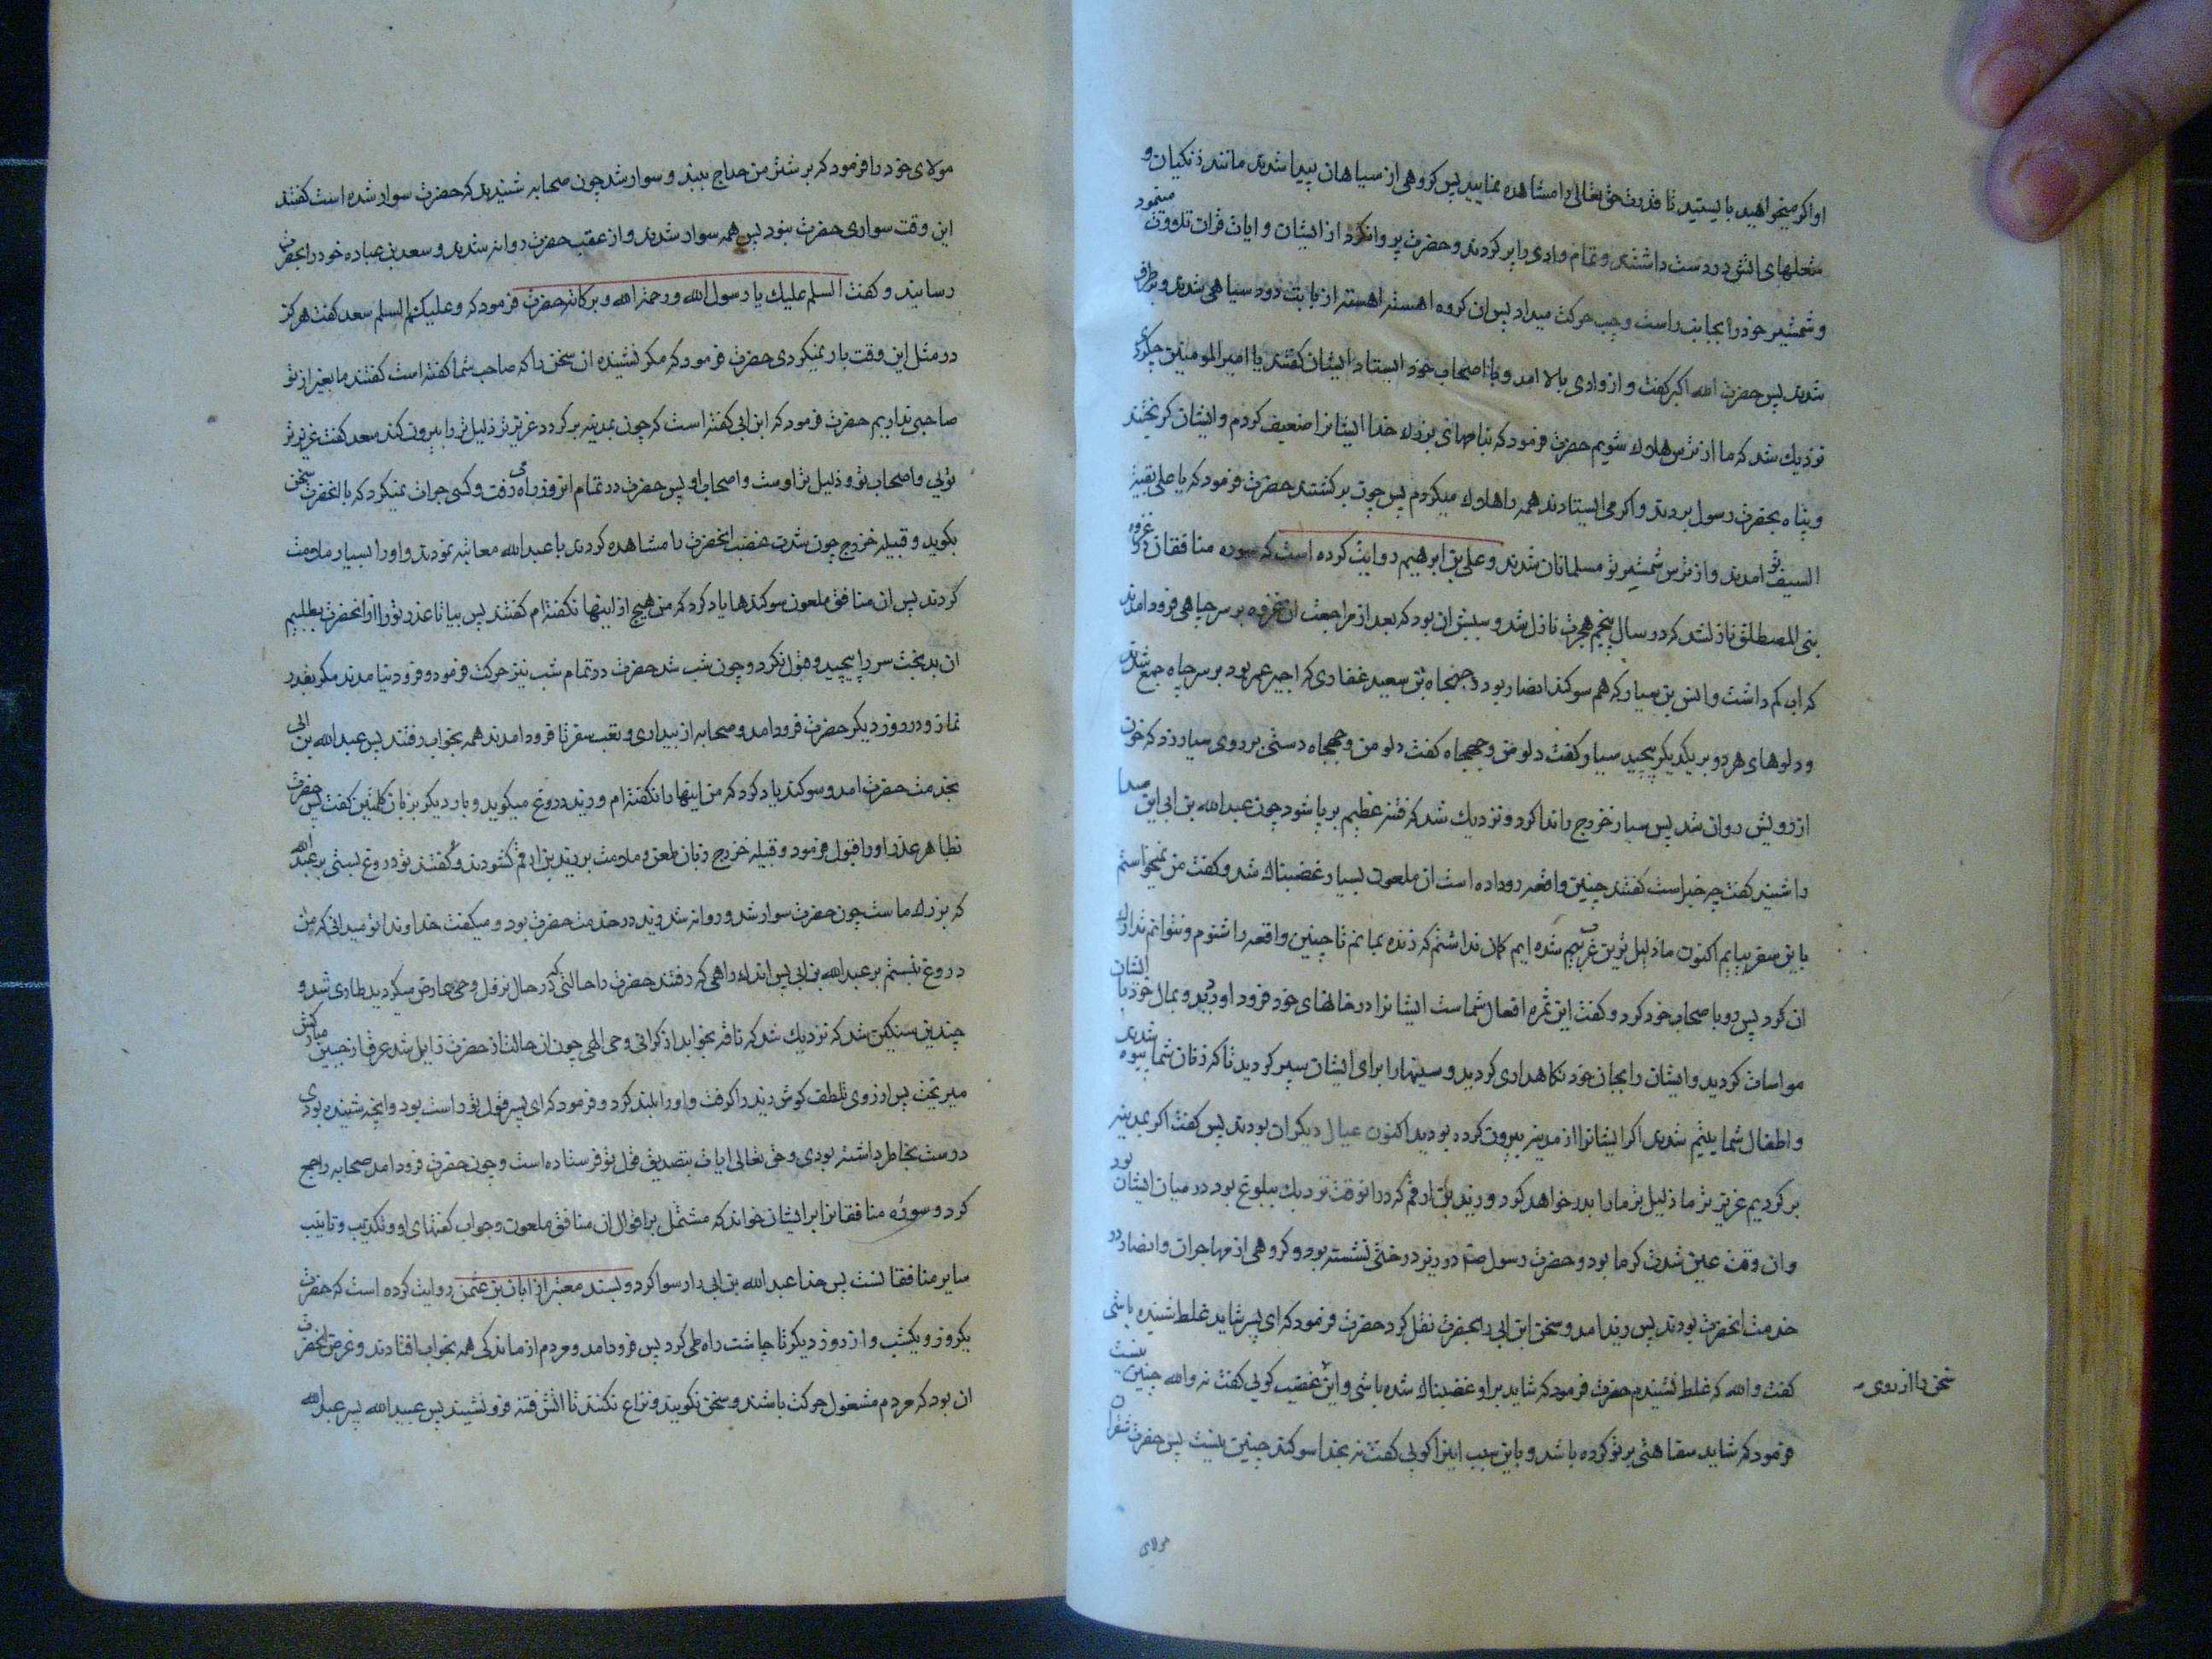 او اگر میخواهید بایستید تا قدرت حق تعالی را مشاهده نمایید پس گروهی از سیاهان پیدا شدند مانند زنگیان و
مشعلهای اتش در دست داشتند و تمام وادی را پر کردند و حضرت پروا نکرد از ایشان و ایات قران تلاوت مینمود
و شمشیر خود را بجانب راست و چپ حرکت میداد پس ان گروه اهسته اهسته از بابت دود سیاهی شدند و برطرف
شدند پس حضرت الله اکبر گفت و از وادی بالا امد و با اصحاب خود ایستاد ایشان گفتند یا امیر المومنین چکردی
نزدیک شد که ما از ترس هلاک شویم حضرت فرمود که بنامهای بزرک خدا ایشانرا ضعیف کردم و ایشان کریختند
و پناه بحضرت رسول بردند و اکر می ایستادند همه را هلاک میکردم پس چون برکشتند حضرت فرمود که یا علی بقیة
السیف تو امدند و از ترس شمشیر تو مسلمانان شدند و علی بن ابرهیم روایت کرده است که سوره منافقان در غزوه
بنی المصطلق نازلشد که در سال پنجم هجرت نازل شد و سببش ان بود که بعد از مراجعت ان غزوه بر سر چاهی فرود امدند
که اب کم داشت و انس بن سیار که هم سوکند انصار بود و جهجاه بن سعید غفاری که اجیر عمر بود بر سر چاه جمع شدند
و دلوهای هر دو بر یکدیگر پیچید سیار کفت دلو من و جهجاه کفت دلو من و جهجاه دستی بر روی سیار زد که خون
از رویش روان شد پس سیار خزرج را ندا کرد و نزدیک شد که فتنه عظیم برپا شود چون عبد الله بن ابی این صدا
را شنید کفت چه خبر است کفتند چنین واقعه رو داده است ان ملعون بسیار غضبناک شد و کفت من نمیخواستم
باین سفر بیایم اکنون ما ذلیل ترین عرب هم شده ایم کمان نداشتم که زنده بمانم تا چنین واقعه را شنوم و نتوانم تدارک
ان کرد پس رو باصحاب خود کرد و کفت این ثمره افعال شماست ایشانرا در خانهای خود فرود اوردید و بمال خود با ایشان
مواسات کردید و ایشان را بجان خود نکاهداری کردید و سینها را برای ایشان سپر کردید تا که زنان شما بیوه شدند
و اطفال شما یتیم شدند اکر ایشانرا از مدینه بیرون کرده بودید اکنون عیال دیکران بودند پس کفت اکر بمدینه
برکردیم عزیزتر ما ذلیل تر ما را بدر خواهد کرد و زید بن ارقم که در انوقت نزدیک ببلوغ بود در میان ایشان بود
و ان وقت عین شدت کرما بود و حضرت رسول ص در زیر درختی نشسته بود و کروهی از مهاجران و انصار در
خدمت انحضرت بودند پس زید امد و سخن ابن ابی را بحضرت نقل کرد حضرت فرمود که ای پسر شاید غلط شنیده باشی
کفت والله که غلط نشنیدم حضرت فرمود که شاید بر او غضبناک شده باشی و این سخن را از روی غضب کویی کفت نه والله چنین نیست
فرمود که شاید سفاهتی بر تو کرده باشد و باین سبب اینرا کویی کفت نه بخدا سوکند چنین نیست پس حضرت شقران
مولای
مولای خود را فرمود که بر شتر من جداج ببند و سوار شد چون صحابه شنیدند که حضرت سوار شده است کفتند
این وقت سواری حضرت نبود پس همه سوار شدند و از عقب حضرت روانه شدند و سعد بن عباده خود را بحضرت
رسانید و کفت السلم علیک یا رسول الله و رحمة الله و برکاته حضرت فرمود که و علیکم السلم سعد کفت هرکز
در مثل این وقت بار نمیکردی حضرت فرمود که مکر نشنیده ان سخن را که صاحب شما کفته است کفتند ما بغیر از تو
صاحبی نداریم حضرت فرمود که ابن ابی کفته است که چون بمدینه برکردد عزیزتر ذلیل تر را بیرون کند سعد کفت عزیزتر
تویی و اصحاب تو و ذلیل تر اوست و اصحاب او پس حضرت در تمام انروز راه می رفت و کسی جرات نمیکرد که با انحضرت سخن
بکوید و قبیله خزرج چون شدت غضب انحضرت را مشاهده کردند با عبد الله معاتبه نمودند و او را بسیار ملامت
کردند پس ان منافق ملعون سوکندها یاد کرد که من هیچ از اینها نکفته ام کفتند پس بیا تا عذر تو را از انحضرت بطلبیم
ان بدبخت سر را پیچید و قبول نکرد و چون شب شد حضرت در تمام شب نیز حرکت فرمود و فرود نیامدند مکر بقدر
نماز و در روز دیکر حضرت فرود امد و صحابه از بیداری و تعب سفر تا فرود امدند همه بخواب رفتند پس عبد الله بن ابی
بخدمت حضرت امد و سوکند یاد کرد که من اینها را نکفته ام و زید دروغ میکوید و بار دیکر بزبان کلمتین کفت پس حضرت
بظاهر عذر او را قبول فرمود و قبیله خزرج زبان طعن و ملامت بر زید بن ارقم کشودند و کفتند تو دروغ بستی بر عبد الله
که بزرک ماست چون حضرت سوار شد و روانه شد زید در خدمت حضرت بود و میکفت خداوندا تو میدانی که من
دروغ نبستم بر عبد الله بن ابی پس اندک راهی که رفتند حضرت را حالتی که در حال نزول وحی عارض میکردید طاری شد و
چندین سنکین شد که نزدیک شد که ناقه بخوابد از کرانی وحی الهی چون ان حالت از حضرت زایل شد عرق از جبین مبارکش
میریخت پس از روی تلطف کوش زید را کرفت و او را بلند کرد و فرمود که ای پسر قول تو راست بود و انچه شنیده بودی
درست بخاطر داشته بودی و حق تعالی ایات بتصدیق قول تو فرستاده است و چون حضرت فرود امد صحابه را جمع
کرد و سوره منافقانرا بر ایشان خواند که مشتمل بر اقوال ان منافق ملعون و جواب کفتهای او و تکذیب و تانیب
سایر منافقانست پس خدا عبد الله بن ابی را رسوا کرد و بسند معتبر از ابان بن عثمن روایت کرده است که حضرت
یکروز و یکشب و از روز دیکر تا چاشت راه طی کرد پس فرود امد و مردم از ماندکی همه بخواب افتادند و غرض انحضرت
ان بود که مردم مشغول حرکت باشند و سخن نکویند و نزاع نکنند تا اتش فتنه فرو نشیند پس عبید الله پسر عبد الله